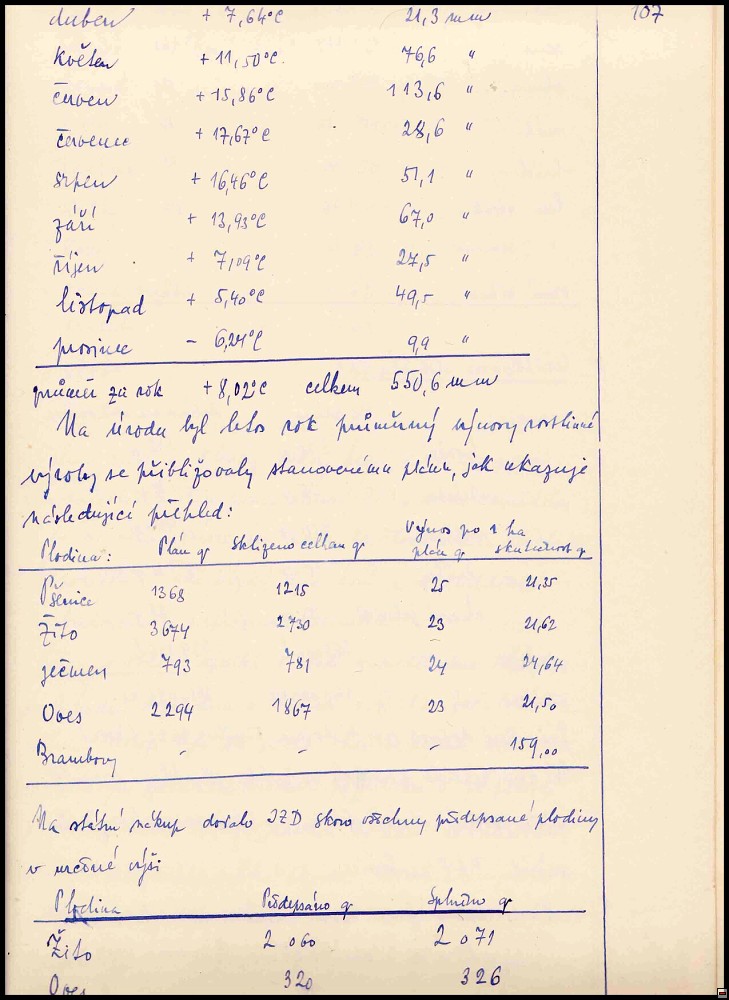 107
duben + 7,64°C 21,3 mm
květen + 11,50°C. 76,6 "
červen + 15,86°C 113,6 "
červenec + 17,67°C 28,6 "
srpen + 16,46°C 51,1 "
září + 13,93°C 67,0 "
říjen + 7,09°C 27,5 "
listopad + 5,40°C 49,5 "
prosinec - 6,24°C 9,9 "
průměr za rok +8,02°C celkem 550,6 mm
Na úrodu byl letos rok průměrný výnosy rostlinné
výroby se přibližovaly stanovenému plánu, jak ukazuje
následující přehled:
Výnos po 1 ha
Plodina: Plán q Sklizeno celkem q plán q skutečnost q
Pšenice 1368 1215 25 21,35
Žito 3674 2730 23 21,62
ječmen 793 781 24 24,64
Oves 2294 1867 23 21,50
Brambory - - - 159,00
Na státní nákup dodalo JZD skoro všechny předepsané plodiny
v určené výši
Plodina Předepsáno q Splněno q
Žito 2 060 2 071
Oves 320 326